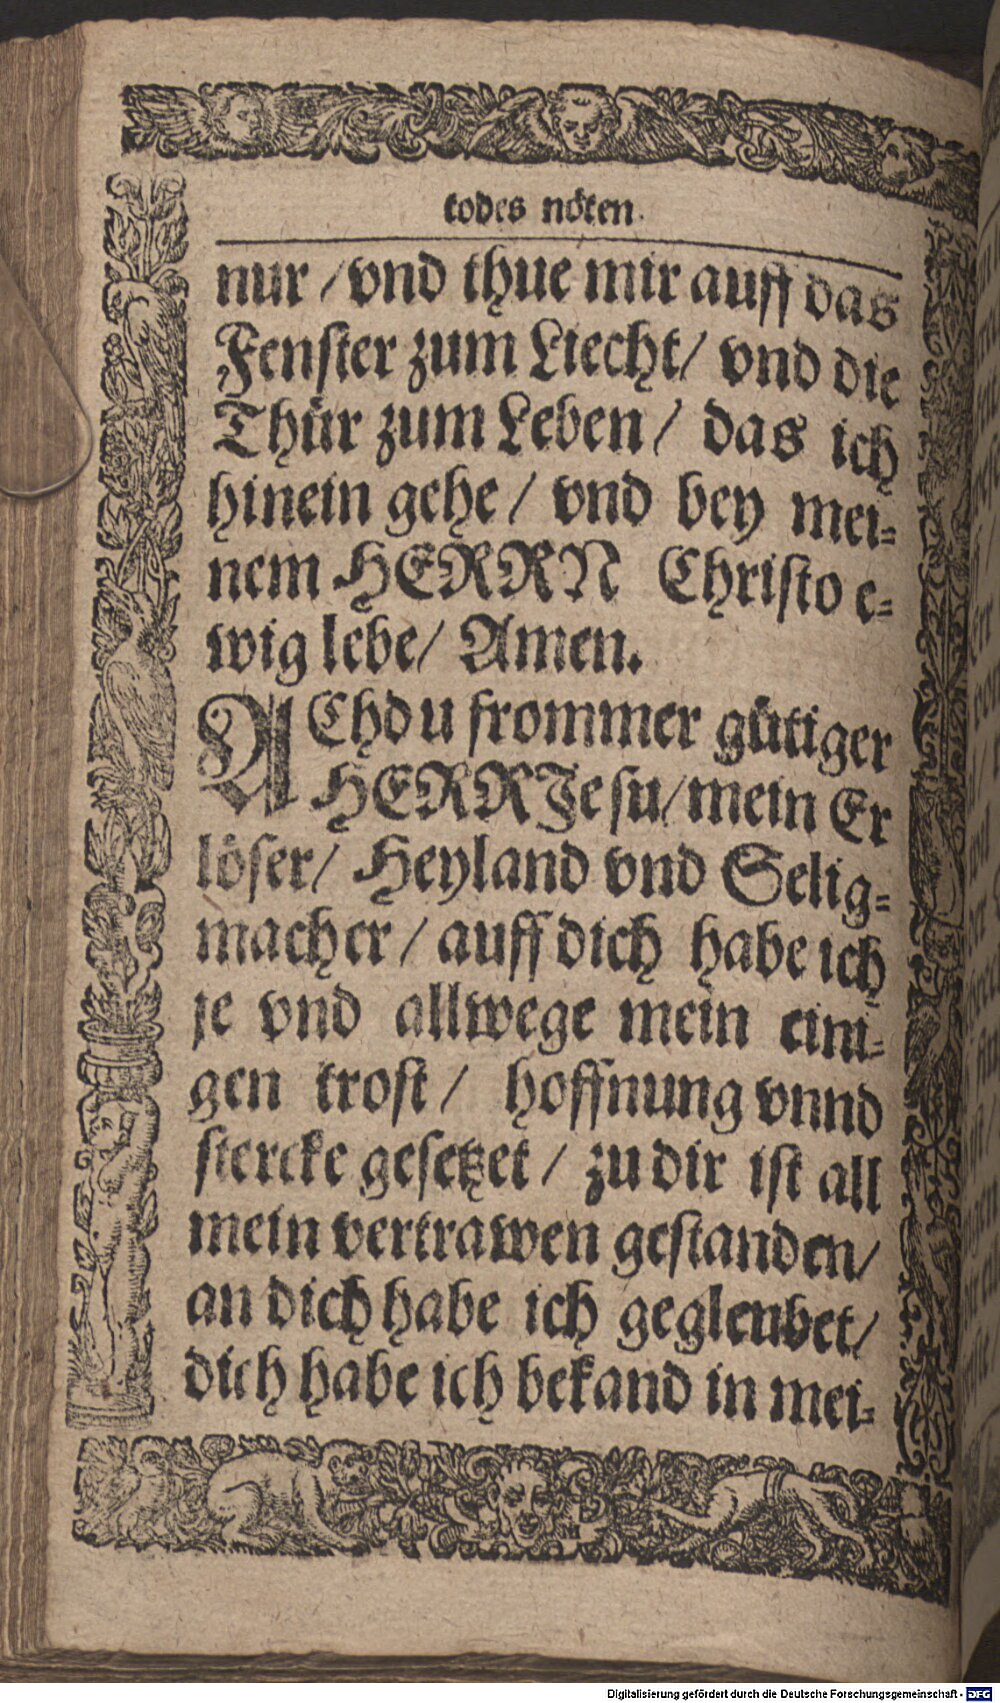 todes nöten.
nur / vnd thue mir auff das
Fenster zum Liecht / vnd die
Thür zum Leben / das ich
hinein gehe / vnd bey mei-
nem HERRN Christo e-
wig lebe / Amen.
AChdu frommer gütiger
HERR Jesu / mein Er
löser / Heyland vnd Selig-
macher / auff dich habe ich
je vnd allwege mein eini-
gen trost / hoffnung vnnd
stercke gesetzet / zu dir ist all
mein vertrawen gestanden /
an dich habe ich gegleubet /
dich habe ich bekand in mei-
Digitalisierung gefördert durch die Deutsche Forschungsgemeinschaft - DFG